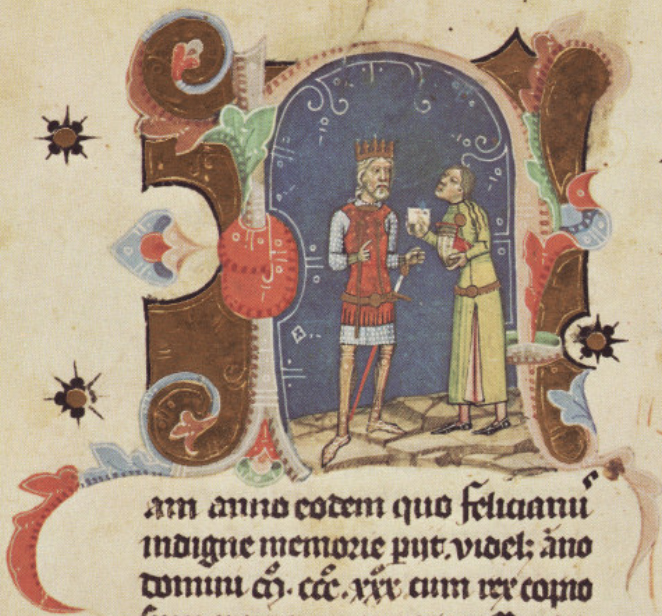 am anno eodem quo felicianuˢ
indigne memorie piit. videl; āno
domini m̊. ccc̊. xxx̊ cum rex copio